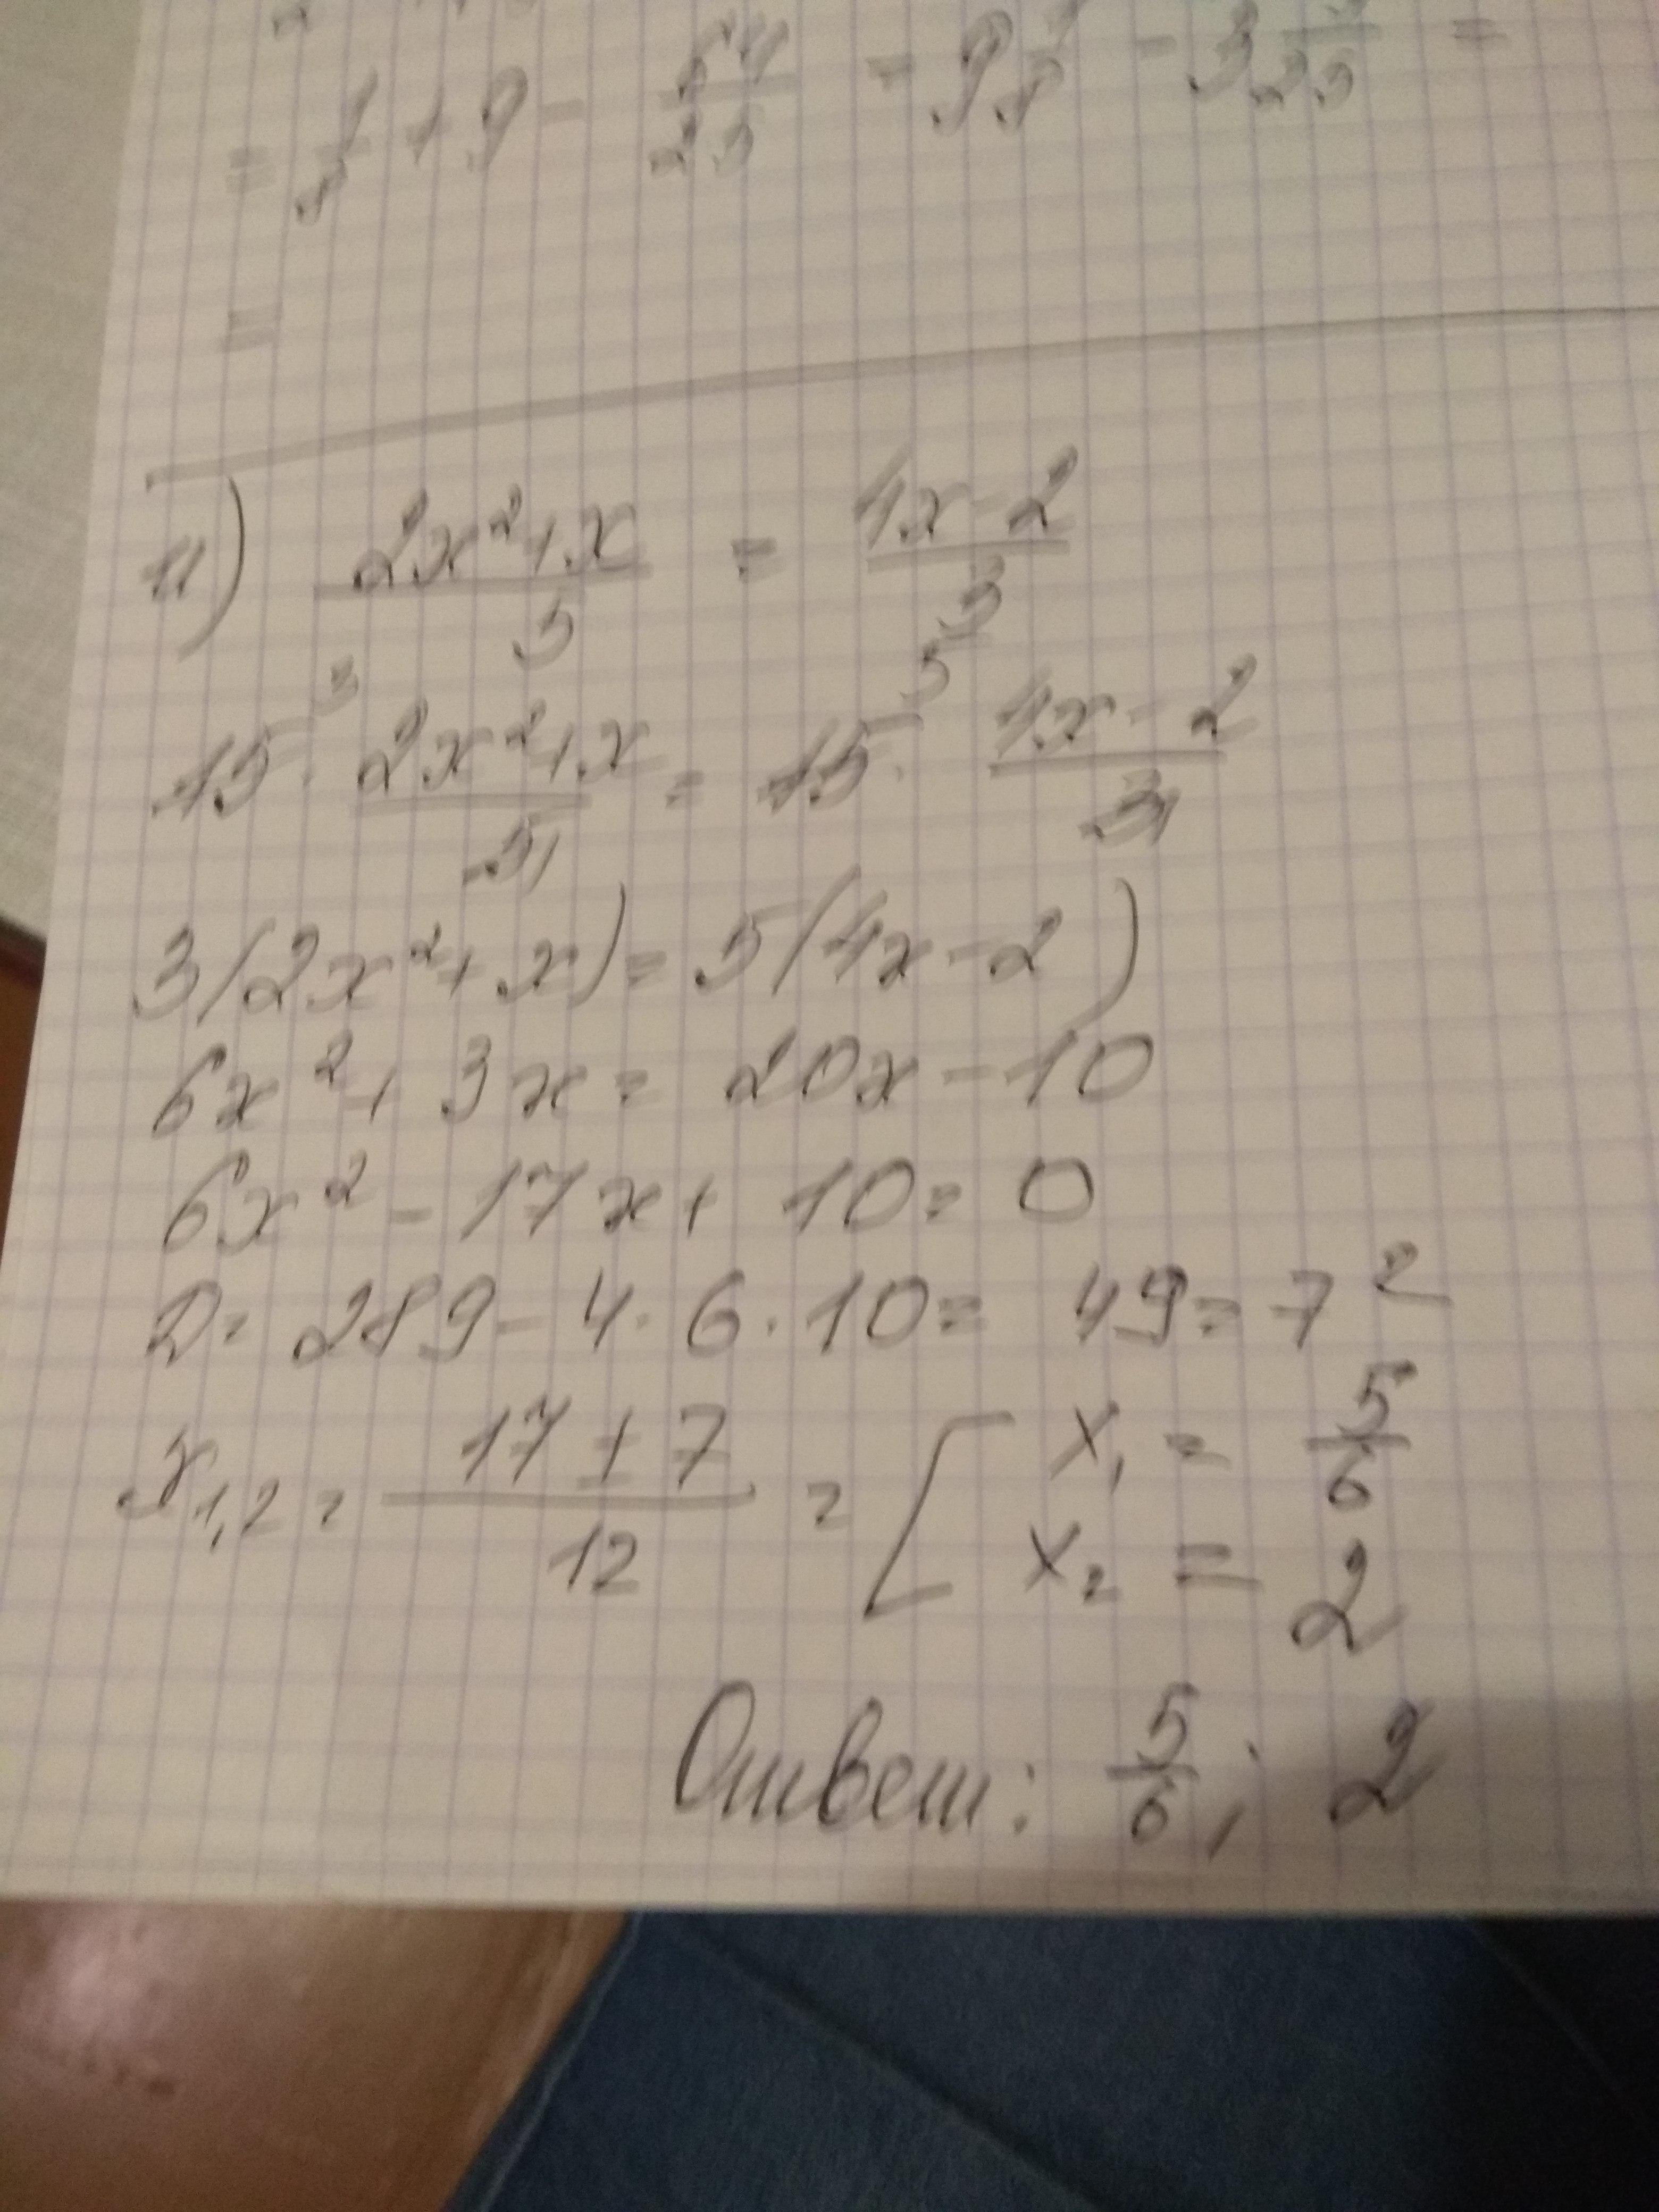 = 1/8 + 9 - 64/25 = 9 1/8 - 3 =
=
11) (2x²+x)/5 = (4x-2)/3
15³ · (2x²+x)/5₁ = 15⁵ · (4x-2)/3₁
3(2x²+x) = 5(4x-2)
6x² + 3x = 20x - 10
6x² - 17x + 10 = 0
D = 289 - 4 · 6 · 10 = 49 = 7²
x₁,₂ = (17±7)/12 = [ x₁ = 5/6
x₂ = 2
Ответ: 5/6; 2